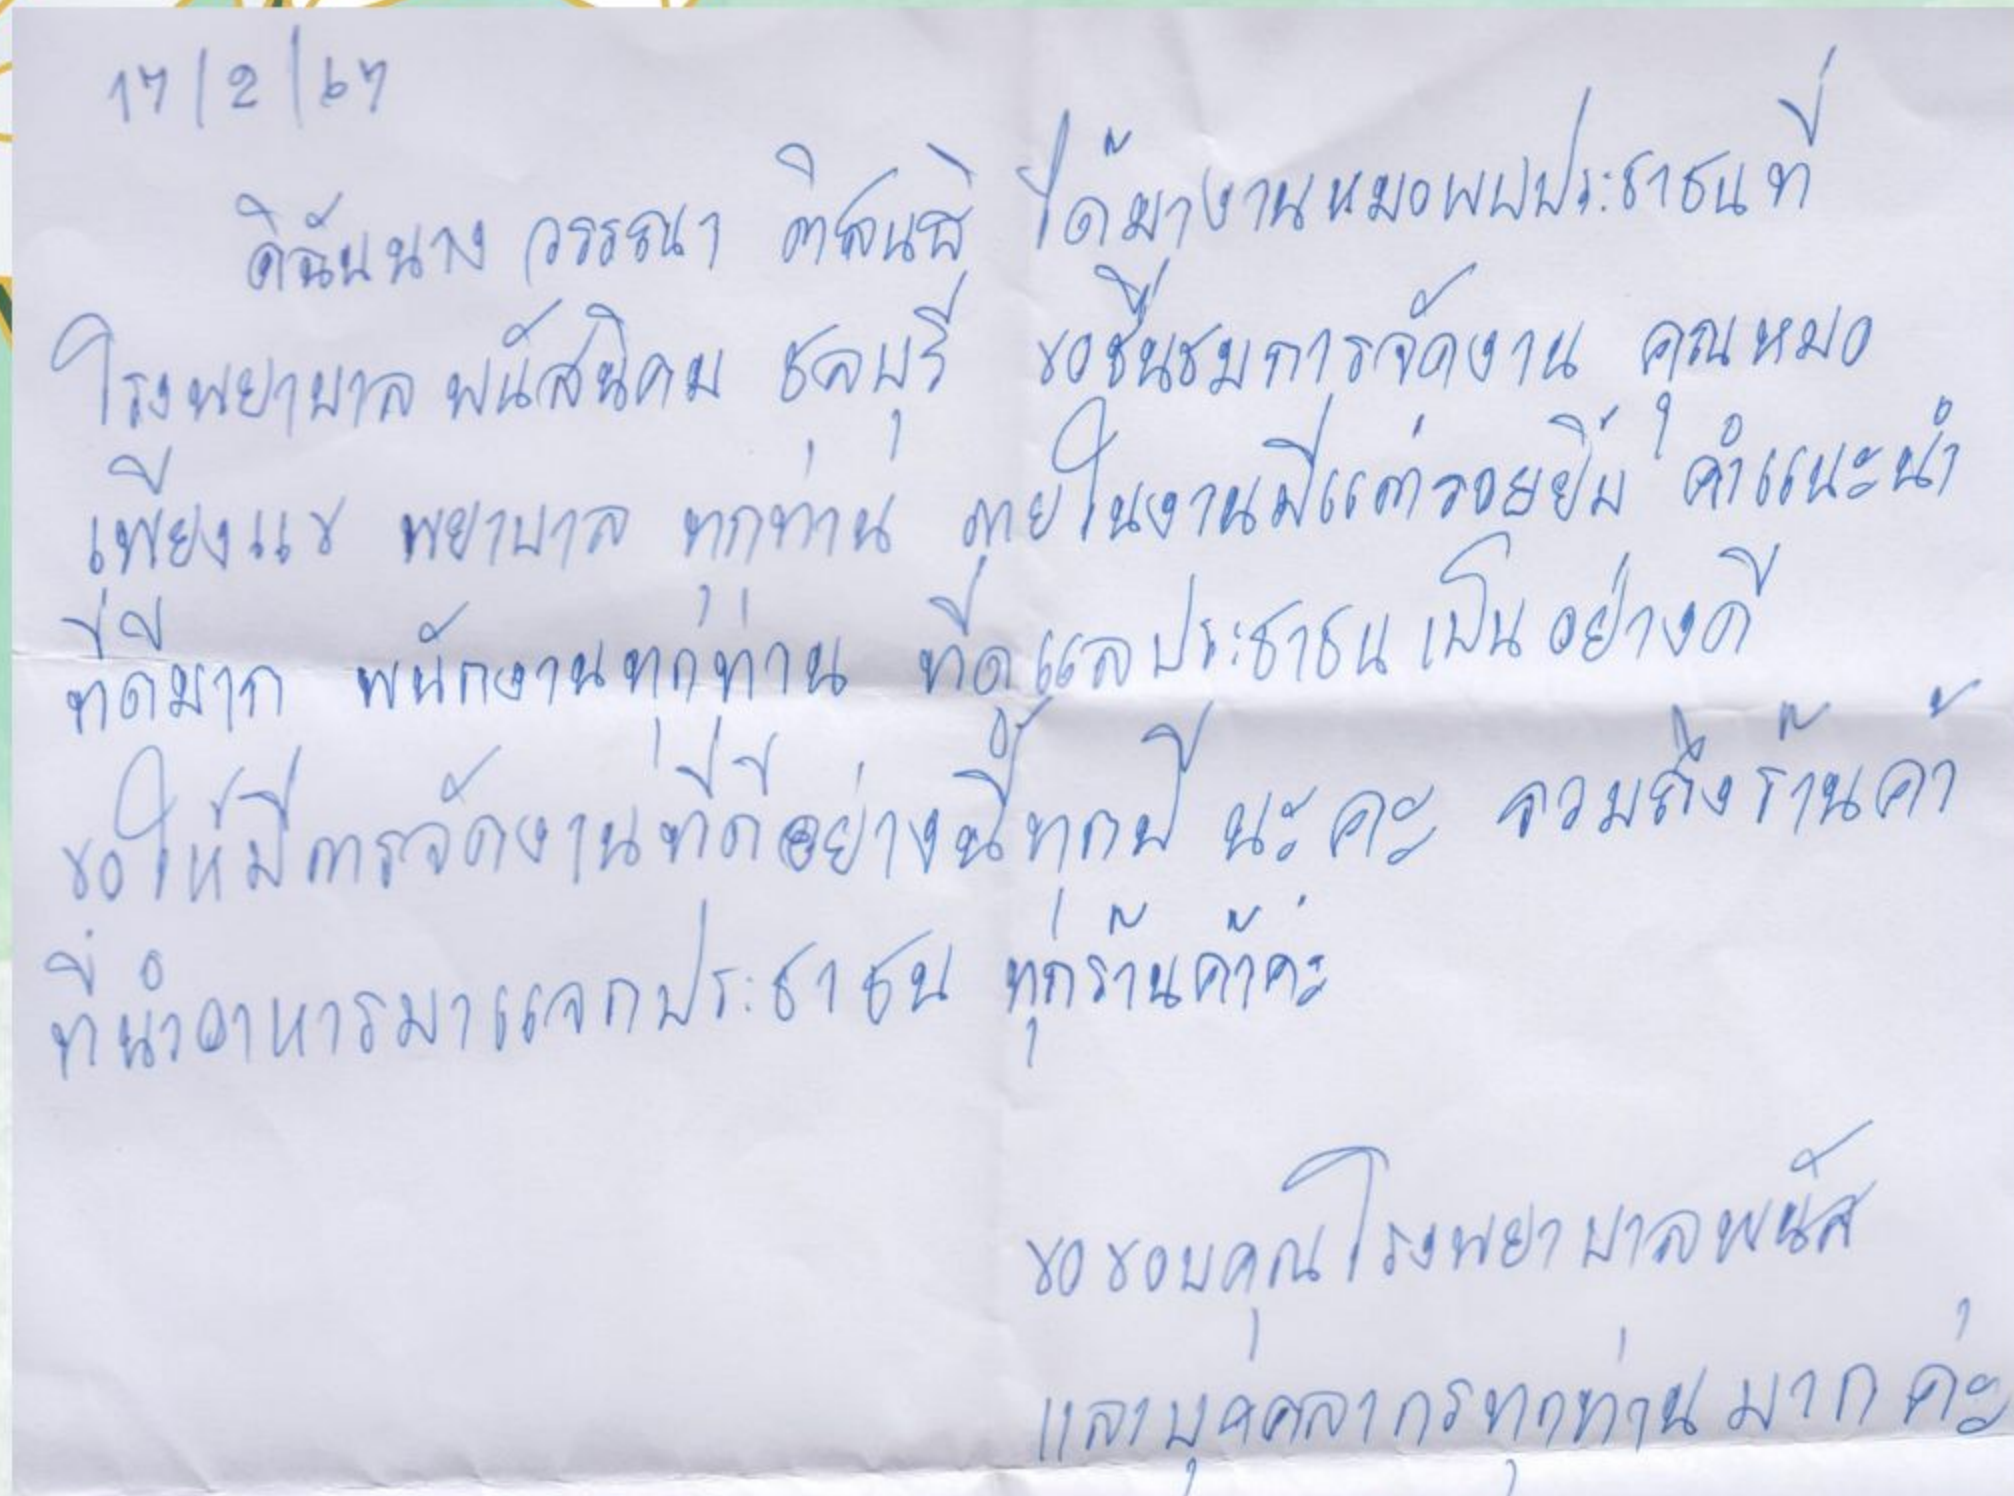 17/2/67
ดิฉันนาง วรรณา ได้มางานหมอพบประชาชนที่
โรงพยาบาลพนัสนิคม ชลบุรี ขอชื่นชมการจัดงาน คุณหมอ
เพียงแข พยาบาล ทุกท่าน ภายในงานมีแต่รอยยิ้ม คำแนะนำ
ที่ดีมาก พนักงานทุกท่าน ที่ดูแลประชาชนเป็นอย่างดี
ขอให้มีการจัดงานที่ดีอย่างนี้ทุกปี นะคะ รวมถึงร้านค้า
ที่นำอาหารมาแจกประชาชน ทุกร้านค้าค่ะ
ขอขอบคุณโรงพยาบาลพนัส
และบุคคลากรทุกท่านมากค่ะ